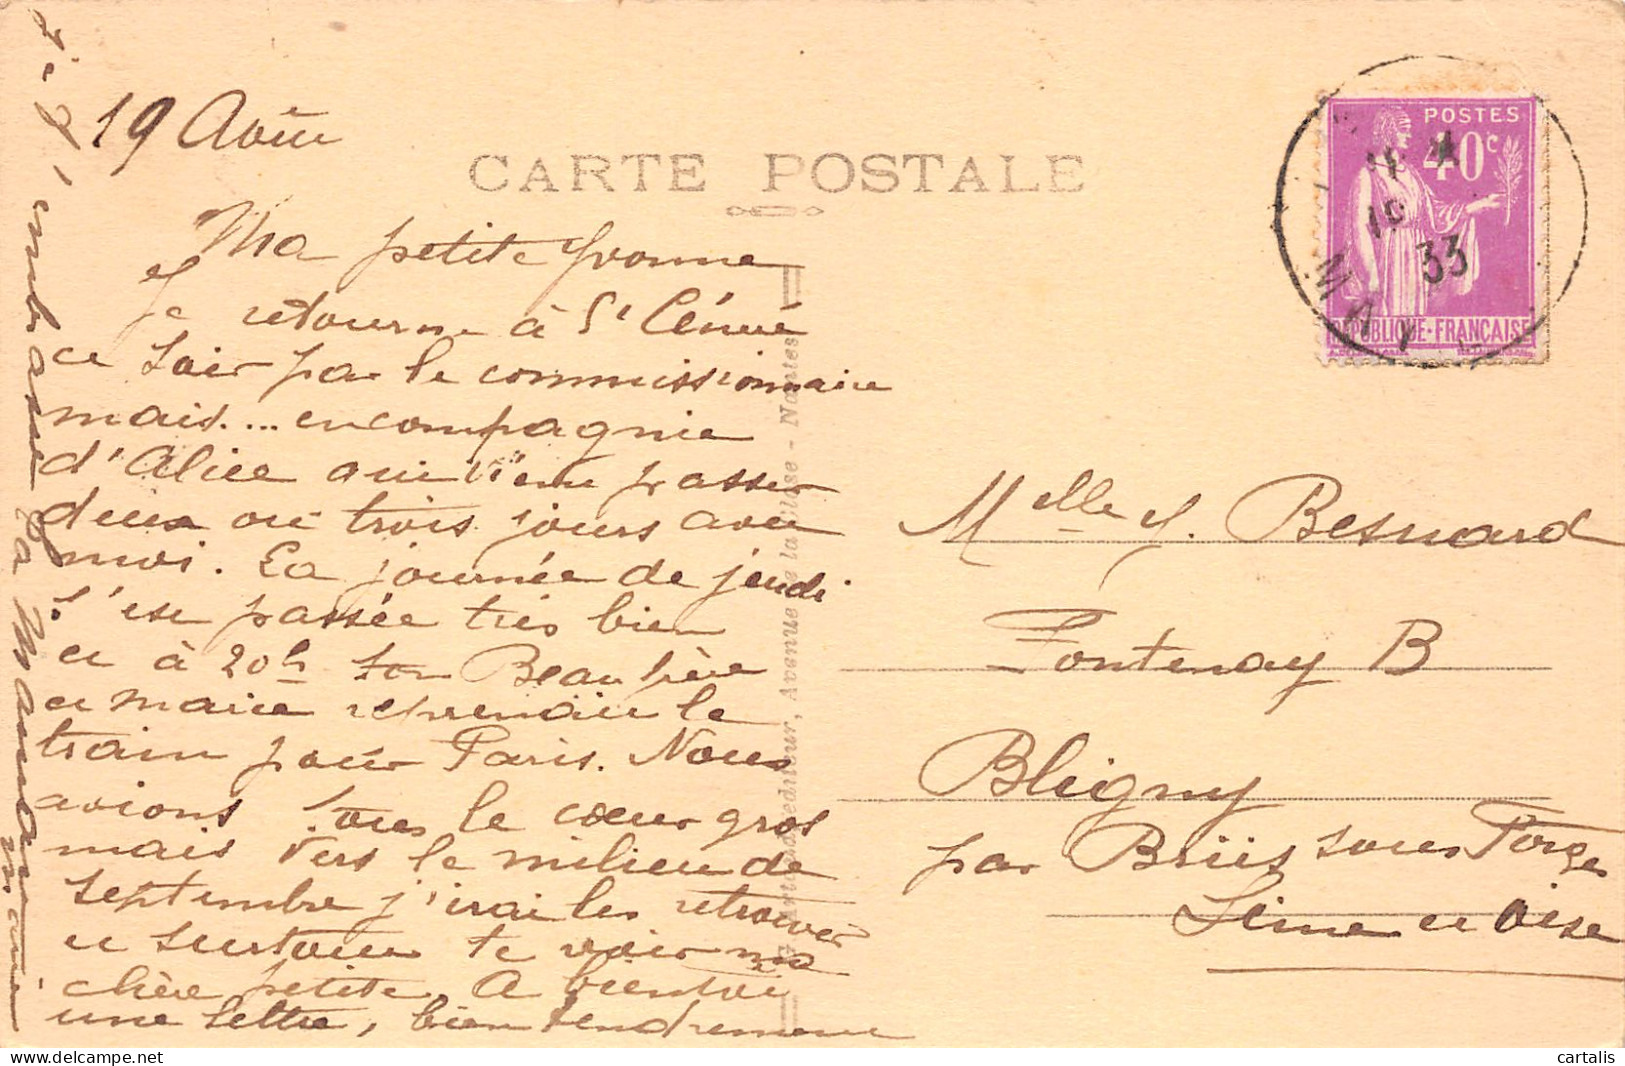 19 Août
CARTE POSTALE
Ma petite Yvonne
Je retourne à St Cénué
ce soir par le commissionnaire
mais... en compagnie
d'Alice qui vient passer
deux ou trois jours avec
moi. La journée de jeudi
s'est passée très bien
et à 20h ton Beau père
et marie reprenaient le
train pour Paris. Nous
avions tous le cœur gros
mais vers le milieu de
septembre j'irai les retrouver
et surtout te voir ma
chère petite. A bientôt
une lettre, bien tendrement
je t'embrasse
Ta Maman
Marie
Artaud Editeur, Avenue de la Close - Nantes
POSTES
40c
REPUBLIQUE·FRANÇAISE
19
33
MAY
Melle Y. Besnard
Fontenay B
Bligny
par Briis sous Forges
Seine et Oise
cartalis